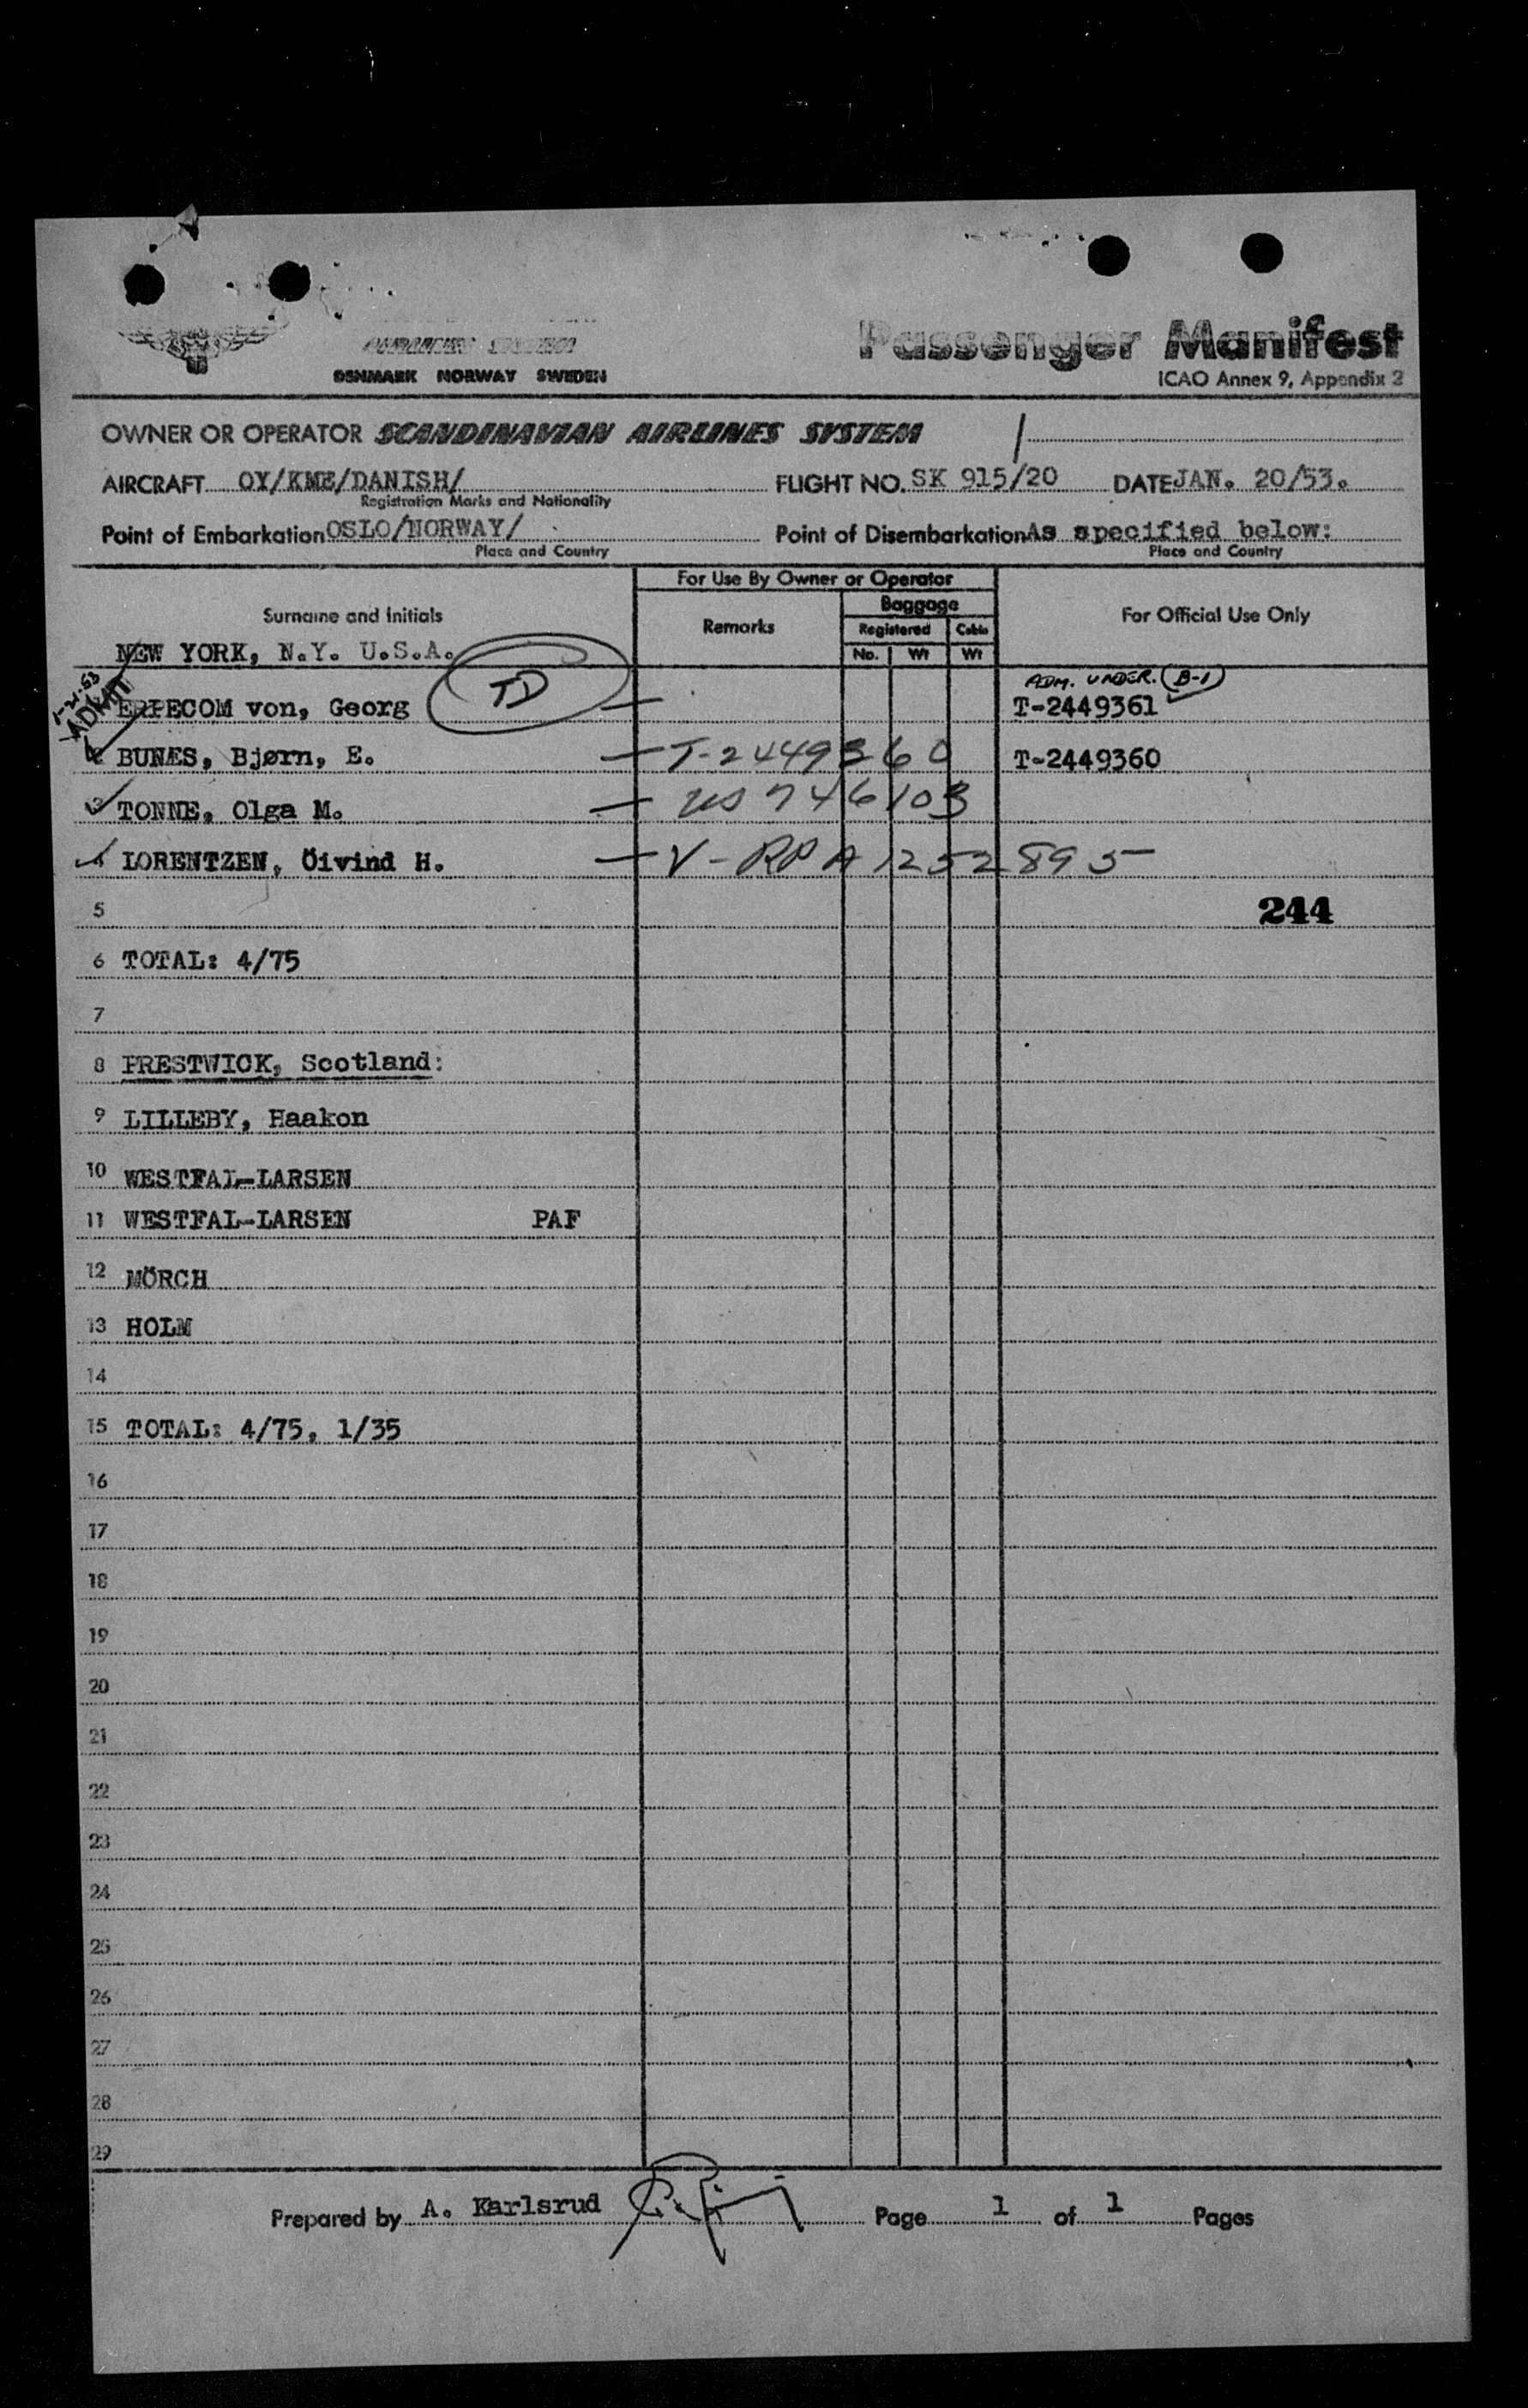 DENMARK NORWAY SWEDEN
Passenger Manifest
ICAO Annex 9, Appendix 2
OWNER OR OPERATOR SCANDINAVIAN AIRLINES SYSTEM
AIRCRAFT OY/KME/DANISH/ FLIGHT NO. SK 915/20 DATE JAN. 20/53.
Registration Marks and Nationality
Point of Embarkation OSLO/NORWAY/ Point of Disembarkation As specified below:
Place and Country Place and Country
For Use By Owner or Operator
Surname and Initials Remarks Baggage For Official Use Only
Registered Cabin
No. Wt Wt
NEW YORK, N.Y. U.S.A.
ADM. UNDER. (B-1)
1-21-53
ADMIT
von, Georg TD — T-2449361
2 BUNÆS, Bjørn, E. — T-2449360 T-2449360
3 TONNE, Olga M. — US 746103
4 LORENTZEN, Öivind H. — V-RPA 1252895
5 244
6 TOTAL: 4/75
7
8 PRESTWICK, Scotland:
9 LILLEBY, Haakon
10 WESTFAL-LARSEN
11 WESTFAL-LARSEN PAF
12 MÖRCH
13 HOLM
14
15 TOTAL: 4/75, 1/35
16
17
18
19
20
21
22
23
24
25
26
27
28
29
Prepared by A. Karlsrud Page 1 of 1 Pages